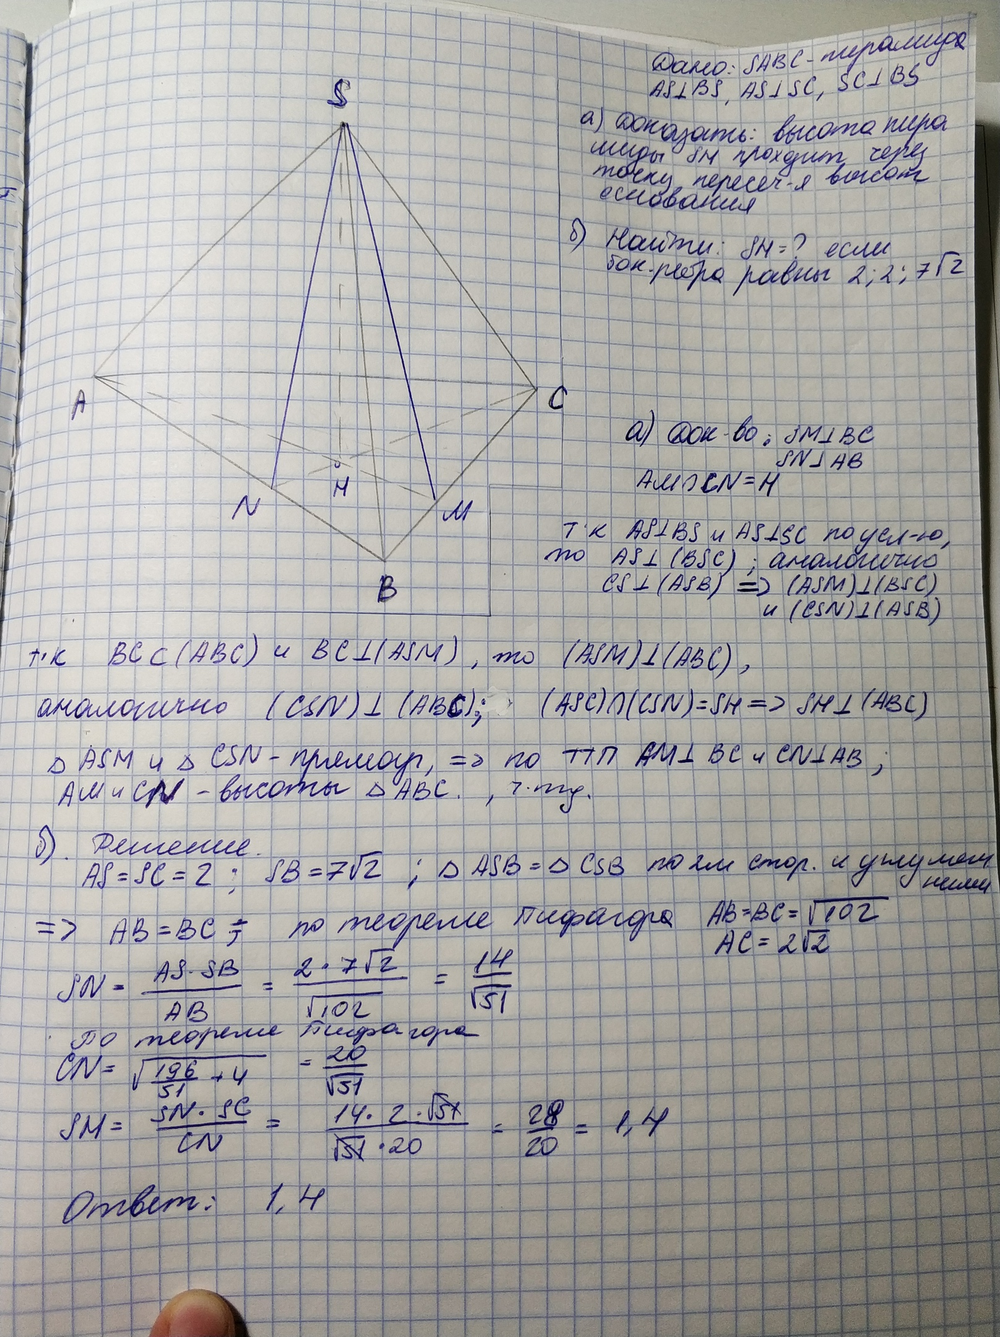 S
A
C
N
H
M
B
Дано: SABC - пирамида
AS⊥BS, AS⊥SC, SC⊥BS
а) Доказать: высота пира
миды SH проходит через
точку пересеч-я высот
основания
б) Найти: SH = ? если
бок. ребра равны 2; 2; 7√2
а) Док-во: SM⊥BC
SN⊥AB
AM∩CN = H
т·к AS⊥BS и AS⊥SC по усл-ю,
то AS⊥(BSC); аналогично
CS⊥(ASB) => (ASM)⊥(BSC)
и (CSN)⊥(ASB)
т·к BC⊂(ABC) и BC⊥(ASM), то (ASM)⊥(ABC),
аналогично (CSN)⊥(ABC); (ASC)∩(CSN)=SH => SH⊥(ABC)
△ ASM и △ CSN - прямоуг, => по ТТП AM⊥BC и CN⊥AB;
AM и CN - высоты △ABC. , ч.т.д.
б). Решение.
AS = SC = 2; SB = 7√2 ; △ ASB = △ CSB по 2м стор. и углу меж
ними
=> AB = BC ; по теореме Пифагора AB = BC = √102
AC = 2√2
SN = AS·SB / AB = 2·7√2 / √102 = 14 / √51
По теореме Пифагора
CN = √(196/51 + 4) = 20 / √51
SH = SN·SC / CN = 14·2·√51 / √51·20 = 28/20 = 1,4
Ответ: 1,4